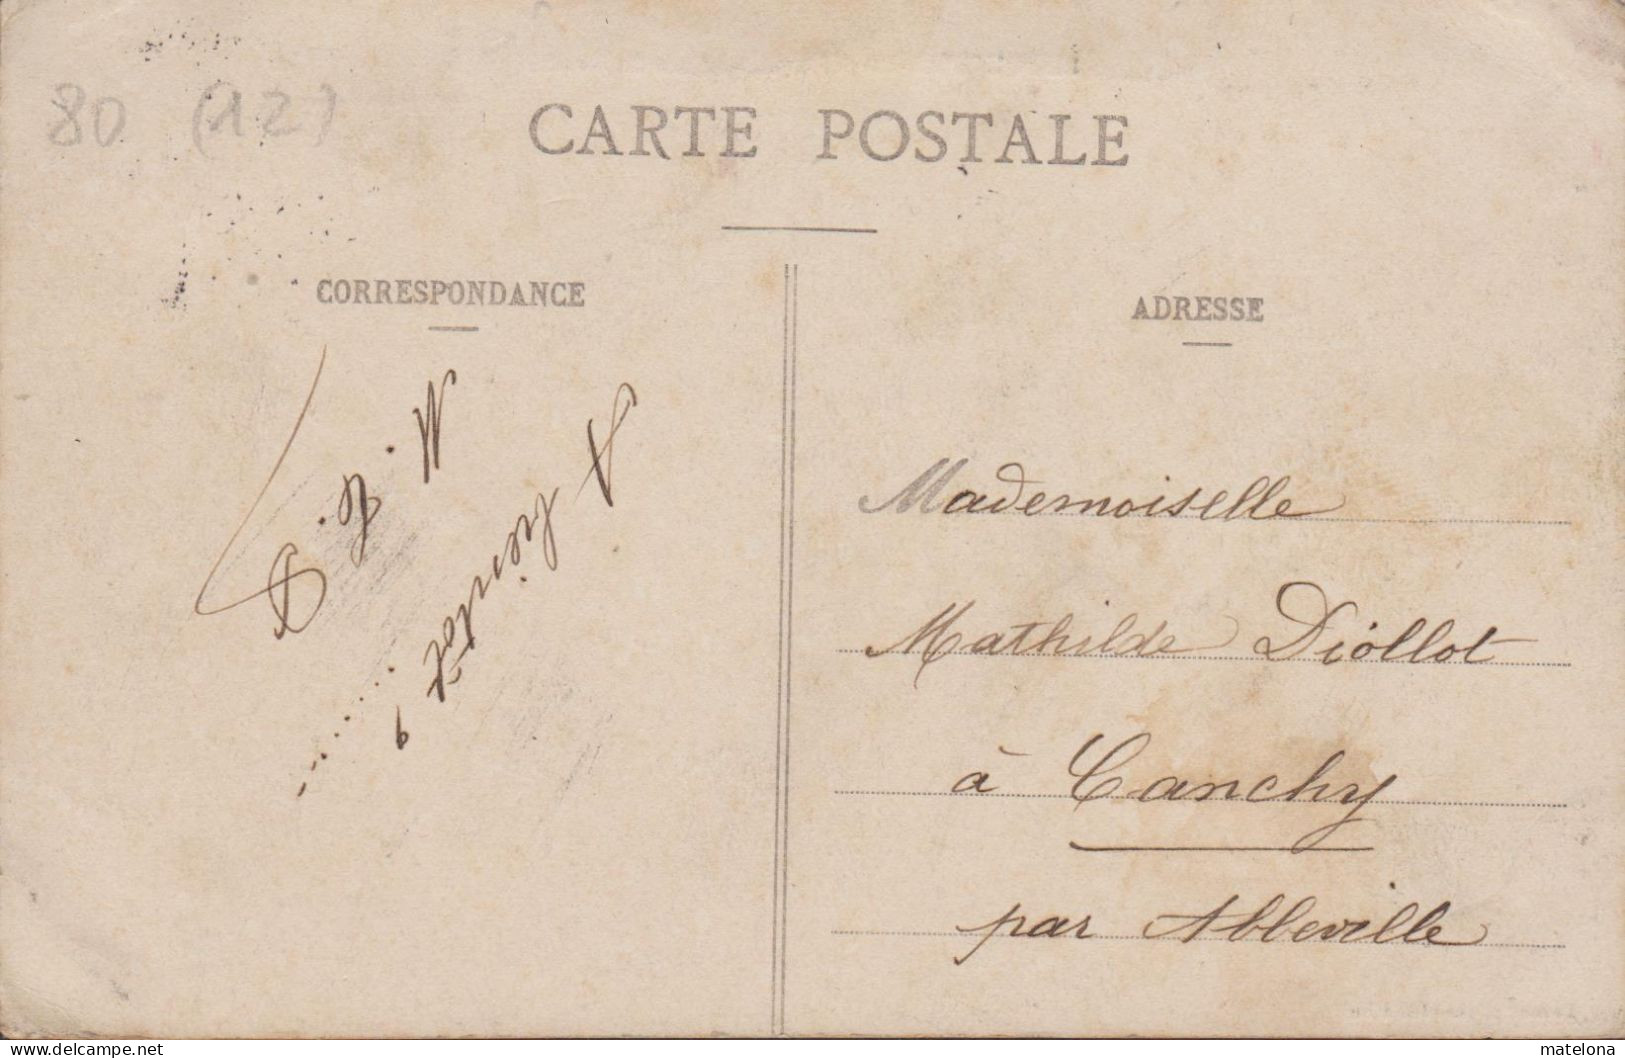 80 (12)
CARTE POSTALE
CORRESPONDANCE
ADRESSE
A bientôt,
Mademoiselle
Mathilde Diollot
à Canchy
par Abbeville
https://www.delcampe.net
matelona